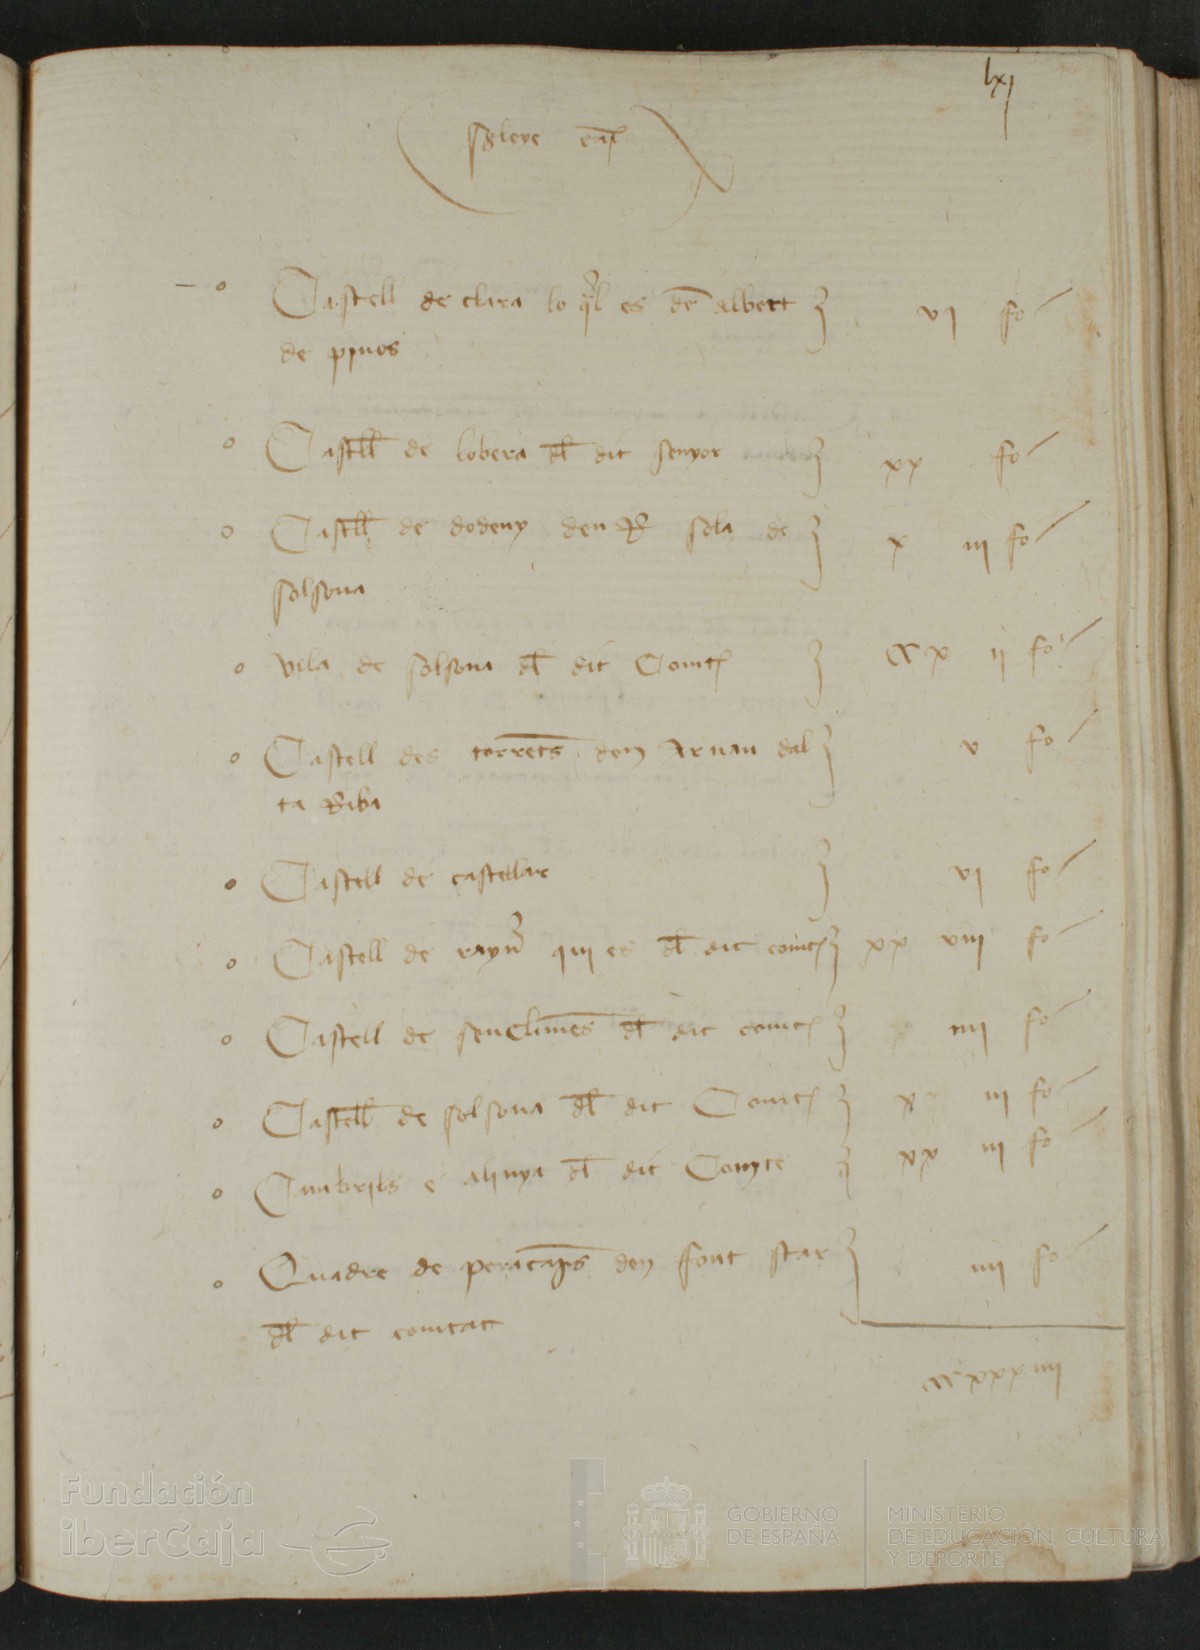 lxj
Sgleye
Castell de clara lo qͣl es dē Albert vi fo
de pinos
Castll de lobera dl dit senyor xx fo
Castll de dodeny den R sola de x iii fo
solsona
Vila de solsona dl dit Comt cx ii fo
Castell des torrēts den Arnau dal v fo
ta Riba
Castell de castellar vi fo
Castell de rayn̄ qui es dl dit comt xx viii fo
Castell de senClimēs dl dit comt iiii fo
Castll de solsona dl dit Comt x iii fo
Cambrils e alinya dl dit Comte xx iii fo
Quadre de peracāps den font star iiii fo
dl dit comtat
ccxxxiiii
Fundación
iberCaja
GOBIERNO
DE ESPAÑA
MINISTERIO
DE EDUCACIÓN, CULTURA
Y DEPORTE